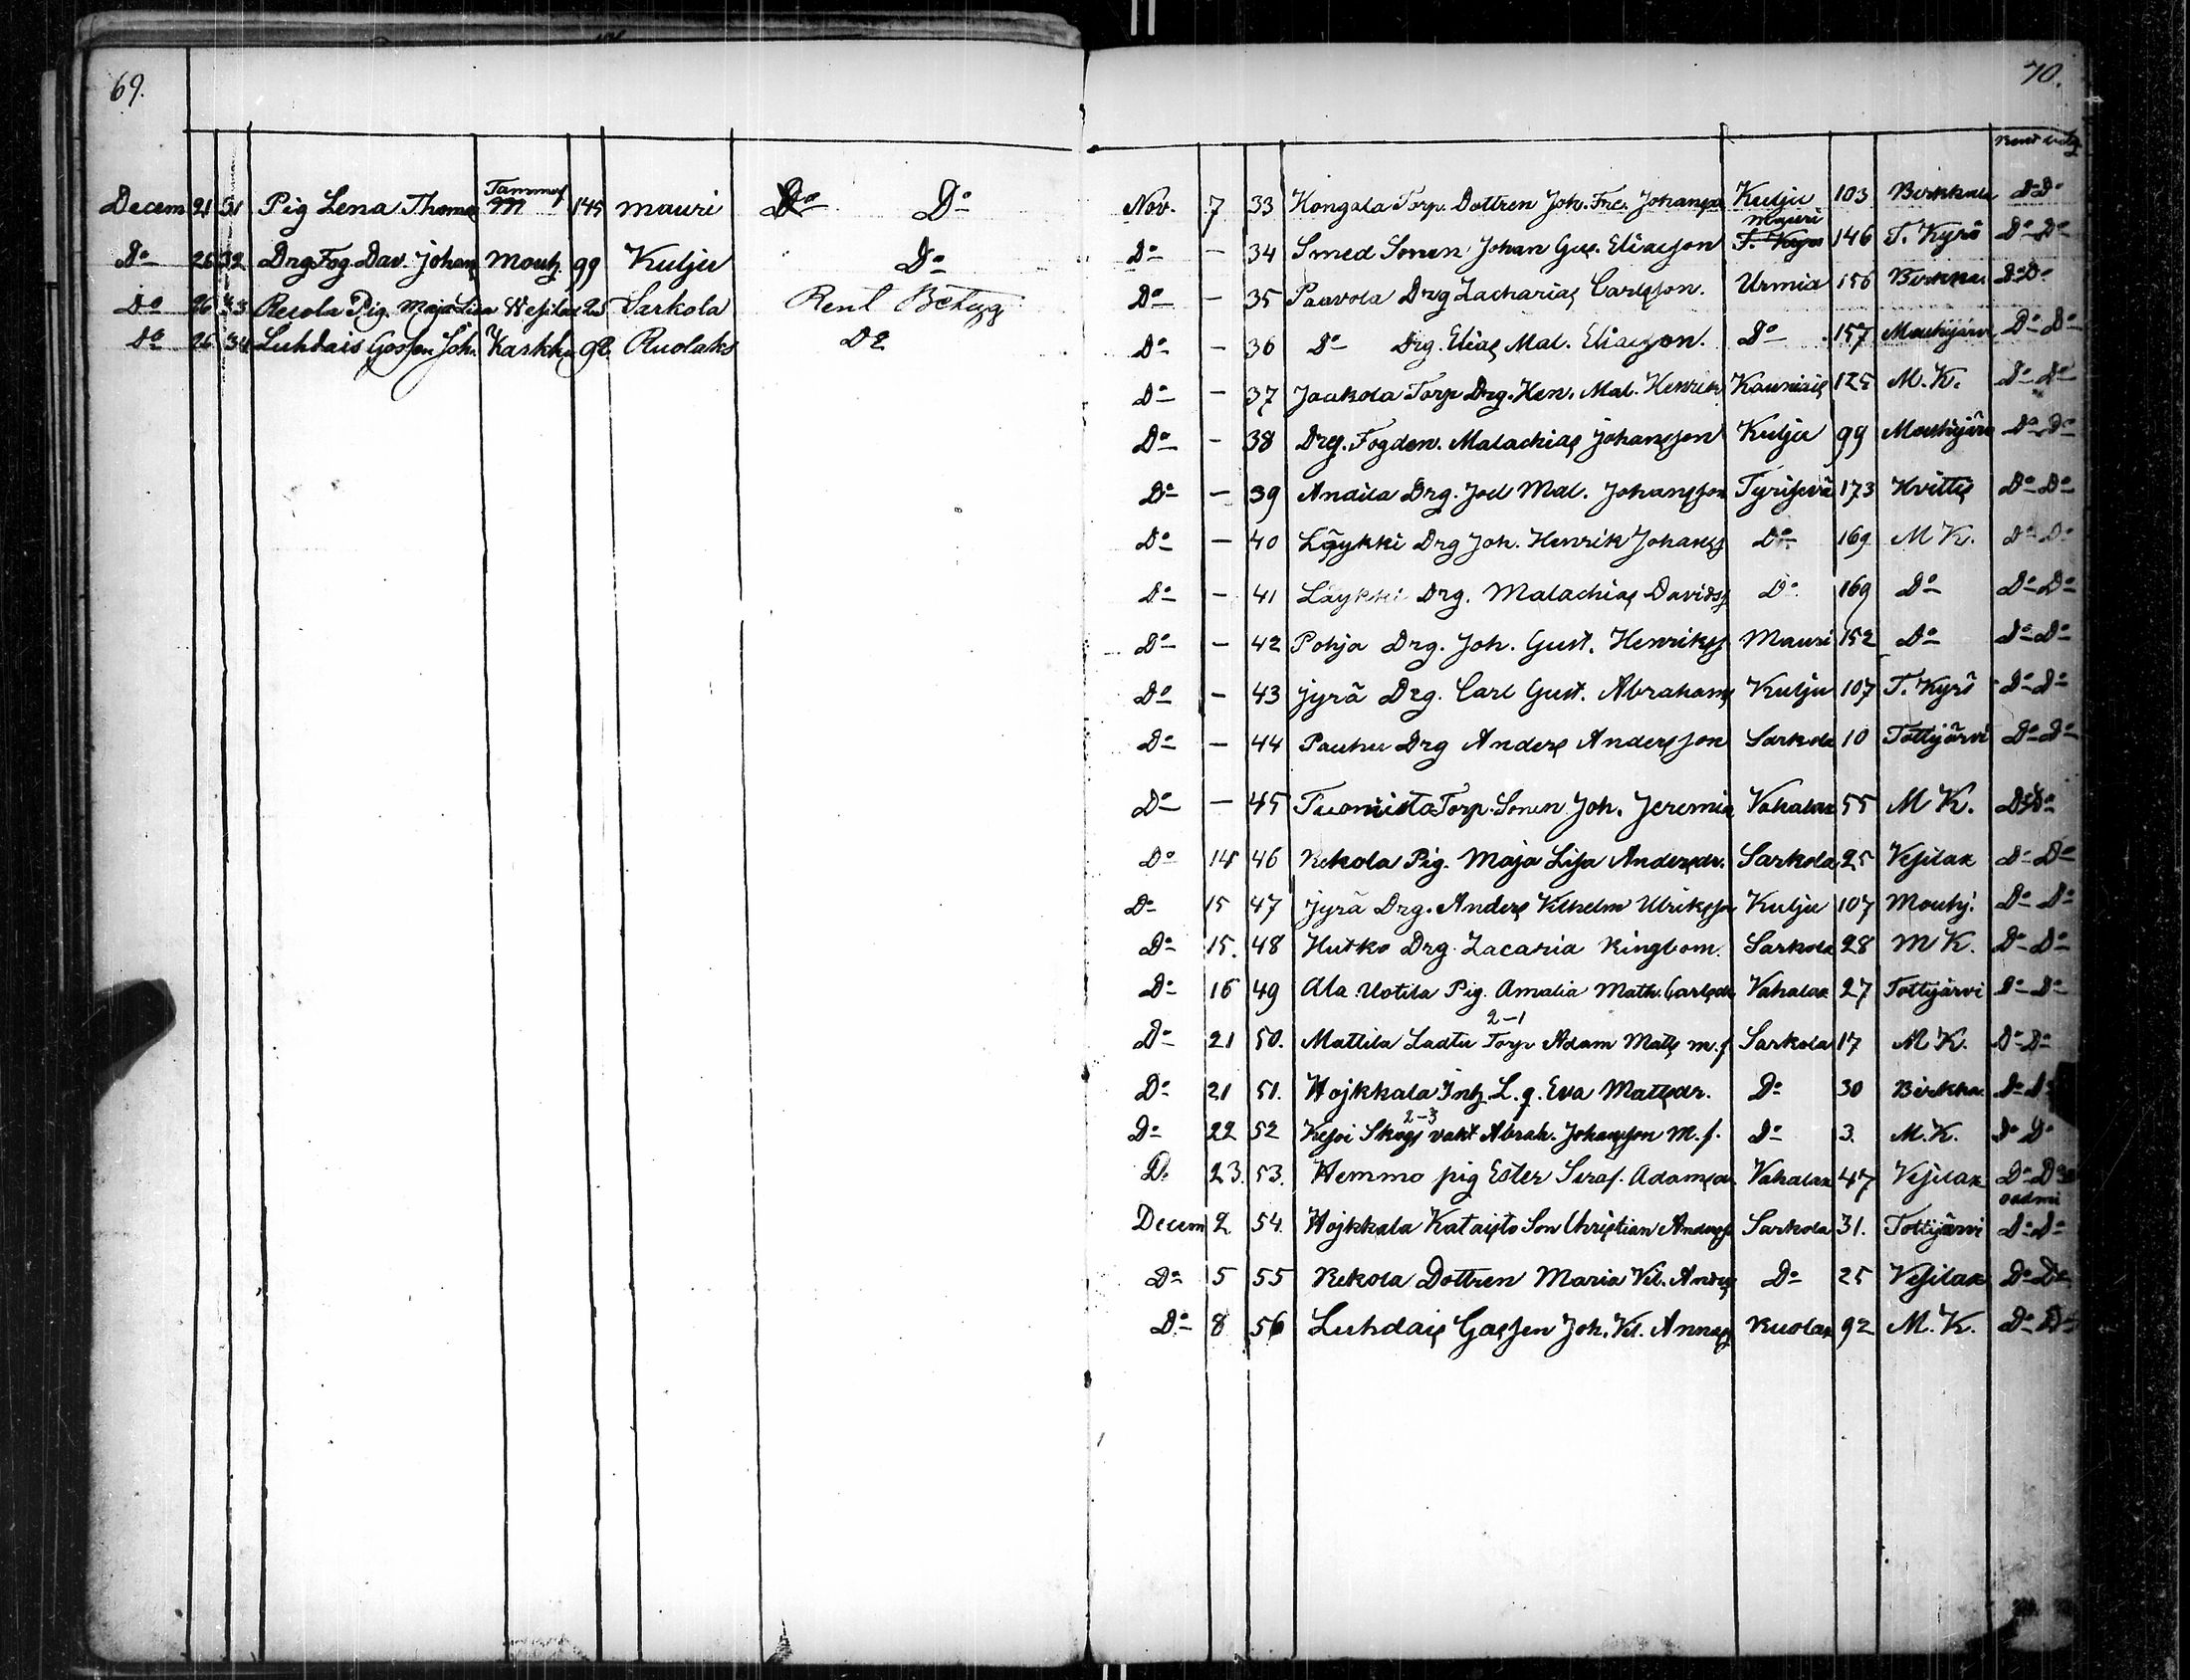 69.
Decem 21 31 Pig Lena Thomas Tammerf 145 Mauri Do Do
Do 26 32 Drg Fog Dav. Johans Mouhj. 99 Kulju Do
Do 26 33 Recola Pig. Maja Lisa Wesilax 25 Sarkola Rent Betyg
Do 26 34 Luhdais Gossen Joh. V. Karkku 92 Ruolaks Do
70.
Rent betyg
Nov. 7 33 Hongala Torp. Dottren Joh. Fre. Johansdr Kulju 103 Birkkala Do Do
Do — 34 Smed Sonen Johan Gus. Eliasson Mauri 146 T. Kyrö Do Do
Do — 35 Paavola Drg Zacharias Carlsson. Urmia 156 Birkka. Do Do
Do — 36 Do Drg. Elias Mal. Eliasson. Do 157 Mouhijärvi Do Do
Do — 37 Jaakola Torp Drg. Hen. Mal. Henrik Kauniais 125 M. K. Do Do
Do — 38 Drg. Fogden. Malachias Johansson Kulju 99 Mouhijärv Do Do
Do — 39 Anaila Drg. Joel Mal. Johansson Tyrisevä 173 Hvittis Do Do
Do — 40 Läykki Drg Joh. Henrik Johanss Do 169 M K. Do Do
Do — 41 Läykki Drg. Malachias Davidss Do 169 Do Do Do
Do — 42 Pohja Drg. Joh. Gust. Henrikss Mauri 152 Do Do Do
Do — 43 Jyrä Drg. Carl Gust. Abrahams Kulju 107 T. Kyrö Do Do
Do — 44 Pauhu Drg Anders Andersson Sarkola 10 Tottijärvi Do Do
Do — 45 Tuomista Torp. Sonen Joh. Jeremia Vahalax 55 M K. Do Do
Do 14 46 Rekola Pig. Maja Lisa Andersdr. Sarkola 25 Vesilax Do Do
Do 15 47 Jyrä Drg. Anders Vilhelm Ulriksson Kulju 107 Mouhj. Do Do
Do 15. 48 Hutko Drg. Zacaria Ringbom. Sarkola 28 M K. Do Do
Do 16 49 Ala Uotila Pig. Amalia Math. Carlsdr Vahalax 27 Tottijärvi Do Do
2–1
Do 21 50. Mattila Ladtu Torp Adam Matts m. f Sarkola 17 M K. Do Do
Do 21 51. Hojkkala Inh. L. q. Eva Mattsdr. Do 30 Birkka. Do Do
2–3
Do 22 52 Kesoi Skogs vakt Abrah. Johansson M. f. Do 3. M. K. Do Do
Do 23. 53. Hemmo pig Ester Seraf. Adamsdr Vahalax 47 Vesilax Do Do
Decem 2 54. Hojkkala Kataisto Son Christian Anderss Sarkola 31. Tottijärvi Do Do
Do 5 55 Rekola Dottren Maria Vil. Anders Do 25 Vesilax Do Do
Do 8 56 Luhdais Gassen Joh. Vil. Annass Ruolax 92 M. K. Do Do